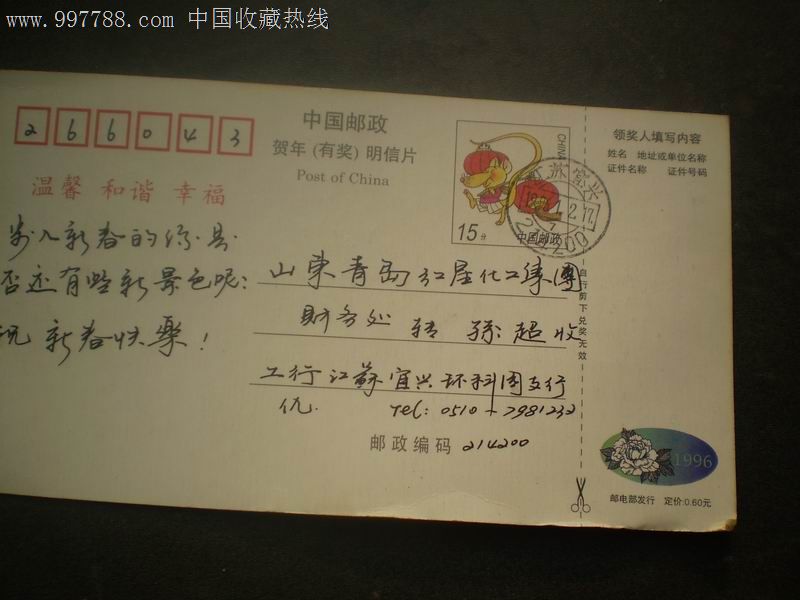 www.997788.com 中国收藏热线
266043
中国邮政
贺年(有奖)明信片
Post of China
温馨 和谐 幸福
步入新春的你是
否还有些新景色呢:
祝 新春快樂!
CHINA
15分
中国邮政
江苏宜兴
214200
山东青岛红星化工集團
财务处 转 孫超收
工行江蘇宜兴环科园支行
Tel: 0510-7981232
邮政编码 214200
领奖人填写内容
姓名 地址或单位名称
证件名称 证件号码
自行剪下兑奖无效
1996
邮电部发行 定价:0.60元